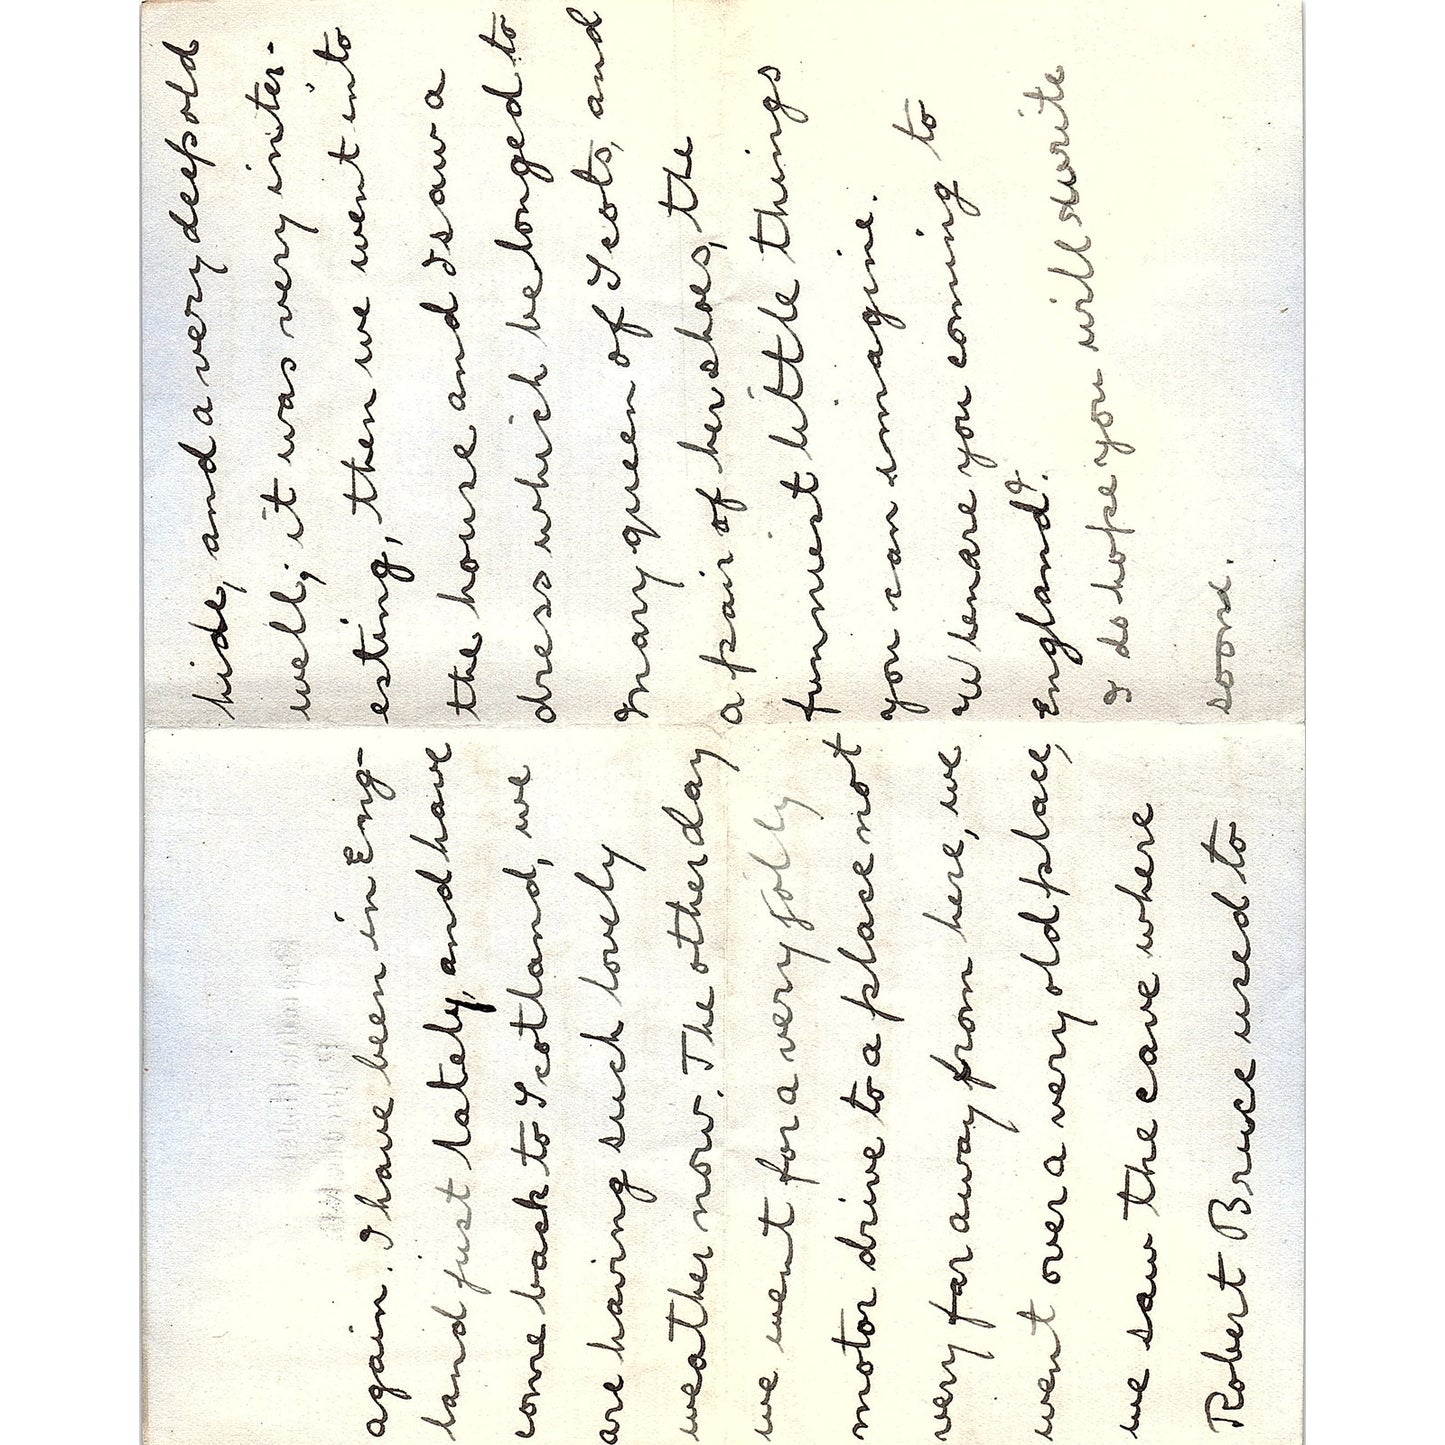 again. I have been in Eng-
land just lately, and have
come back to Scotland, we
are having such lovely
weather now. The other day
we went for a very jolly
motor drive to a place not
very far away from here, we
went over a very old place,
we saw the cave where
Robert Bruce used to
hide, and a very deep old
well; it was very inter-
esting, then we went into
the house and I saw a
dress which belonged to
Mary queen of Scots, and
a pair of her shoes, the
funniest little things
you can imagine.
When are you coming to
England?
I do hope you will write
soon.